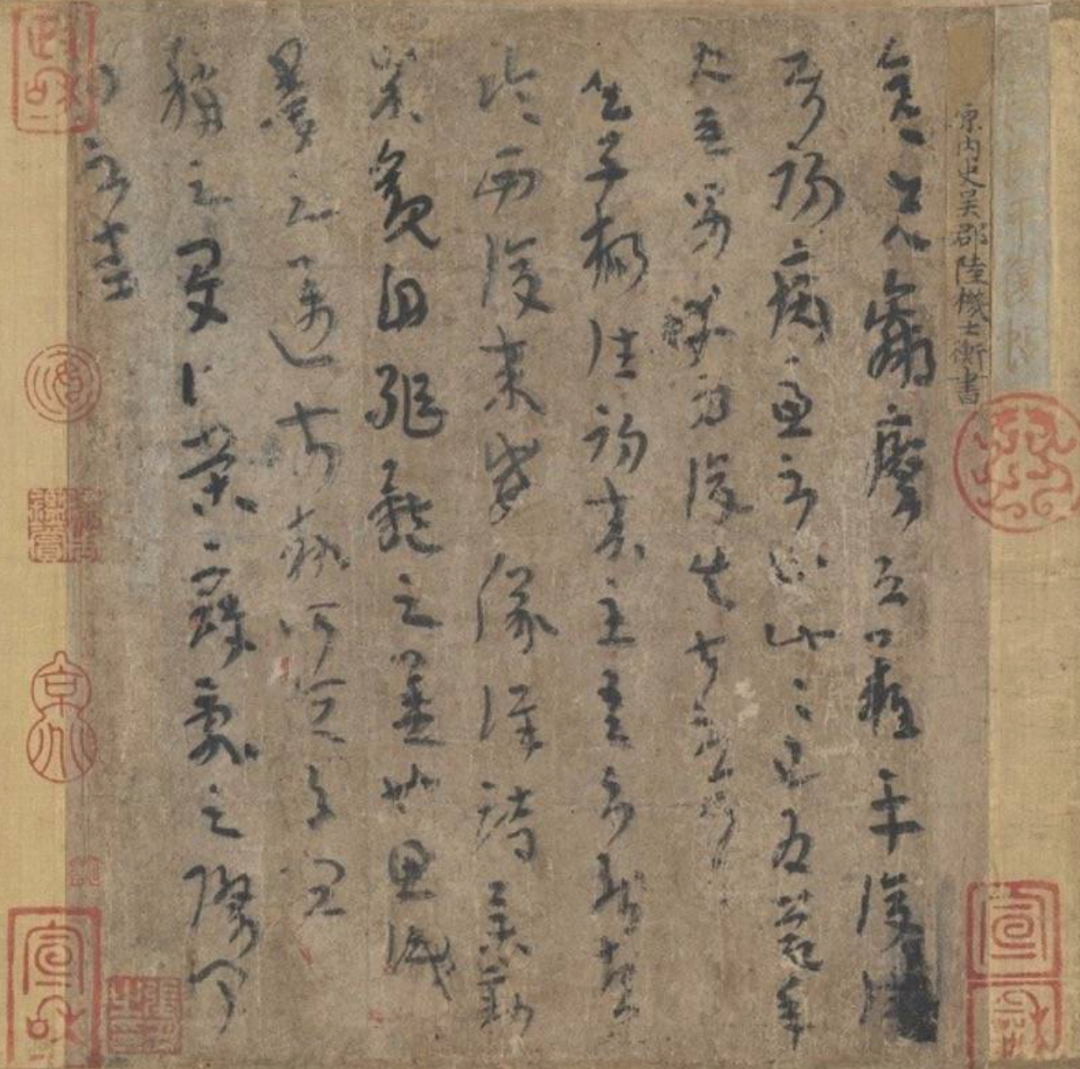 晉內史吳郡陸機士衡書
彥先羸瘵恐難平復往
屬初病慮不止此此已為慶承
使唯男幸為復失前憂耳
吳子楊往初來主吾不能盡
臨西復來威儀詳跱舉動
成觀自軀體之美也思識
量之邁前執所恒有宜
稱之夏伯榮寇亂之際聞
問不悉